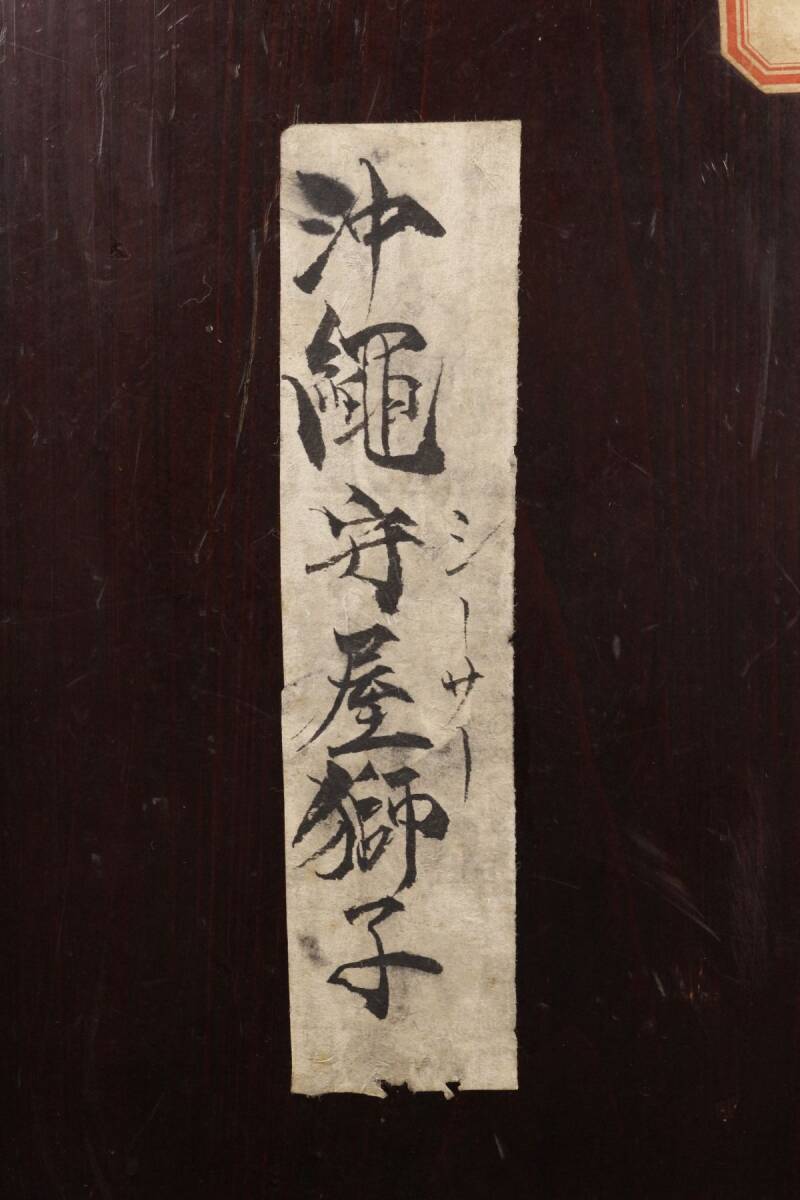 沖繩守屋獅子
シーサー